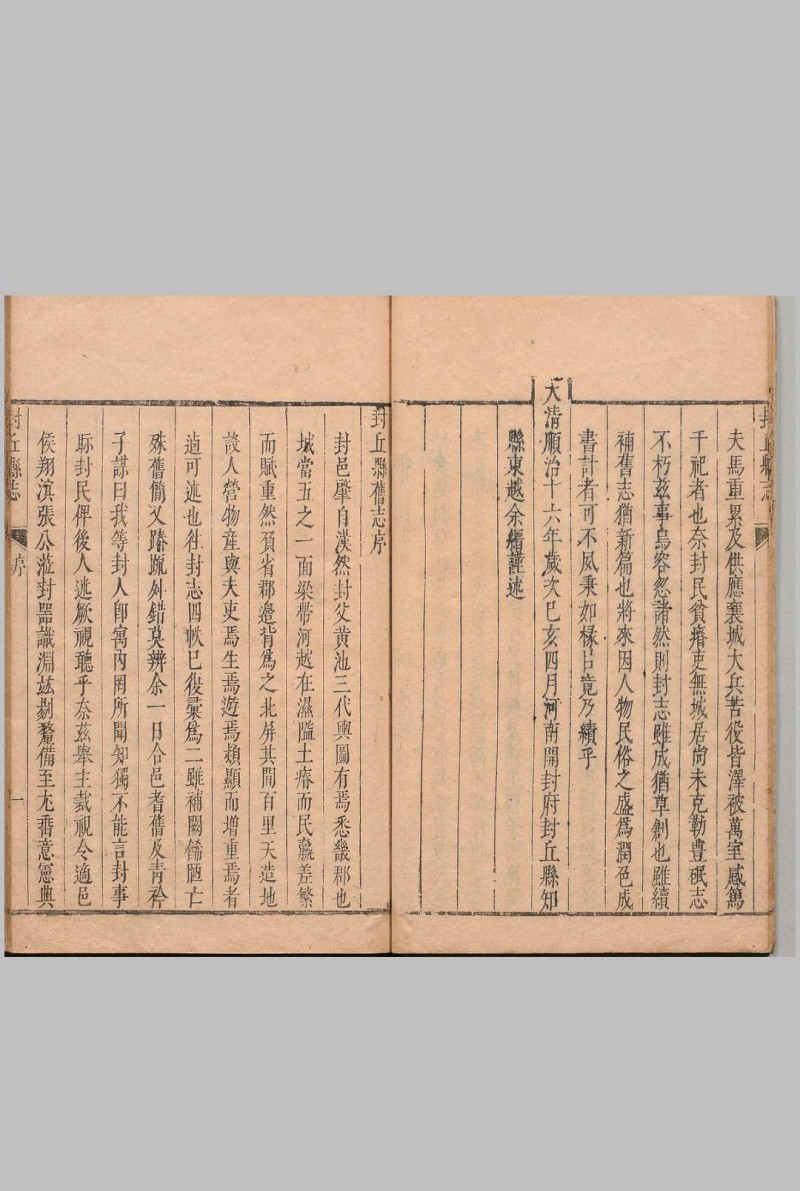 夫馬重累及供應襄城大兵苦役皆澤被萬室感篤
千祀者也奈封民貧瘠吏無城居尚未克勒豊碾志
不朽茲事烏容忽諸然則封志雖成猶草創也雖續
補舊志猶新篇也將來因人物民俗之盛為潤色成
書計者可不夙秉如椽占竟乃續乎
大清順治十六年歲次己亥四月河南開封府封丘縣知
縣東越余縉謹述
封丘縣舊志序
封邑肇自漢然封父黃池三代輿圖有焉悉畿郡也
城當五之一面梁帶河越在濕隘土瘠而民羸差繁
而賦重然預省郡邉背為之北屏其間百里天造地
設人營物產與夫吏焉生焉遊焉頬顯而增重焉者
葢可述也徃封志四帙已復彙為二雖補闕鏽陋亡
殊舊簡又踳踈舛錯莫辨余一日合邑耆舊及青衿
子謀曰我等封人卽寓內罔所聞知獨不能言封事
眎封民俾後人迷厥視聽乎奈茲舉主裁視令適邑
侯翔溟張公蒞封器識淵玆剔釐備至尤乗意憲典
封丘縣志
序
一